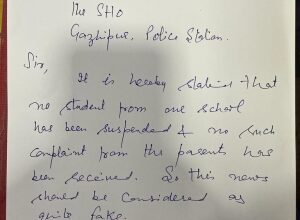 The SHO
Gazhipur, Police Station.
Sir,
It is hereby stated that
no student from our school
has been suspended & no such
complaint from the parents has
been received. So this news
should be considered as
quite fake.